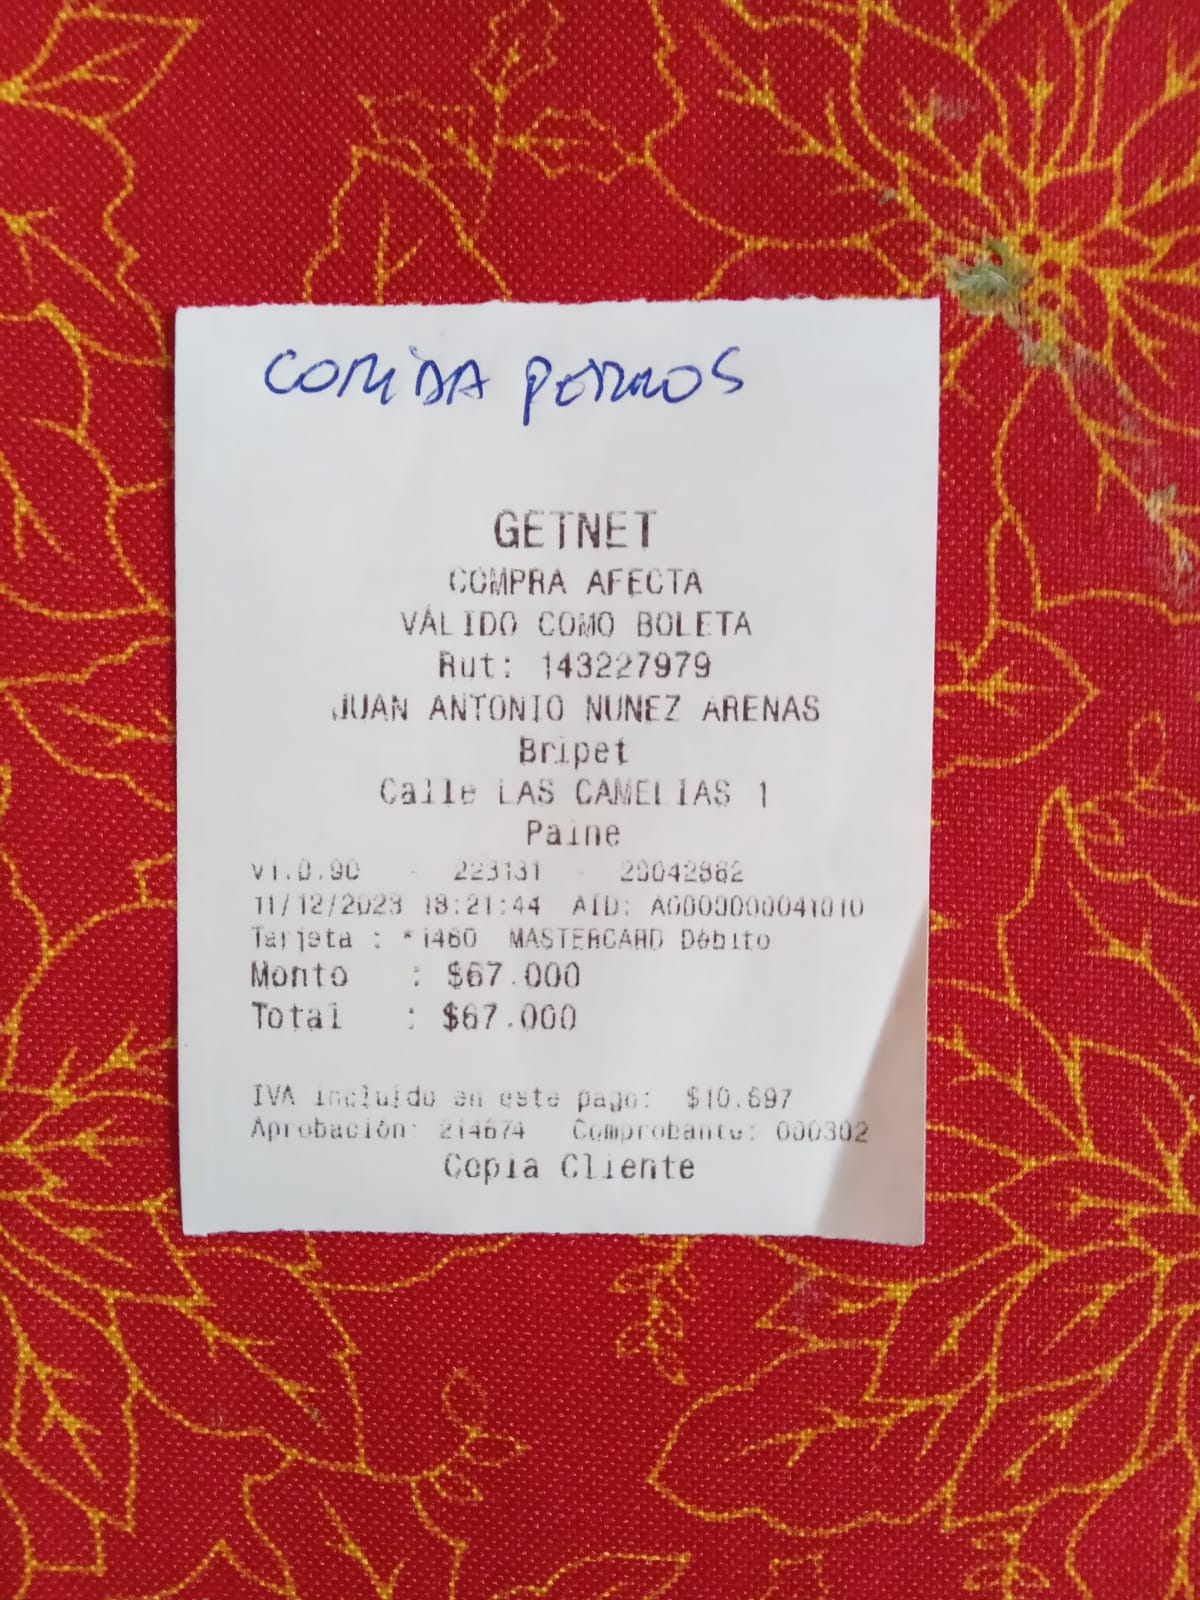 COMIDA PERROS
GETNET
COMPRA AFECTA
VÁLIDO COMO BOLETA
Rut: 143227979
JUAN ANTONIO NUNEZ ARENAS
Bripet
Calle LAS CAMELIAS 1
Paine
v1.0.90 - 223131 - 20042862
11/12/2023 18:21:44 AID: A0000000041010
Tarjeta : *1460 MASTERCARD Débito
Monto : $67.000
Total : $67.000
IVA incluido en este pago: $10.697
Aprobación: 214674 Comprobante: 000302
Copia Cliente